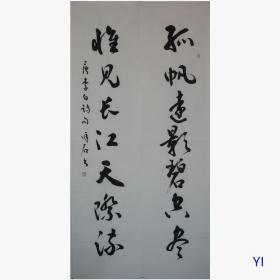 孤帆远影碧空尽
惟见长江天际流
唐李白诗句
YI